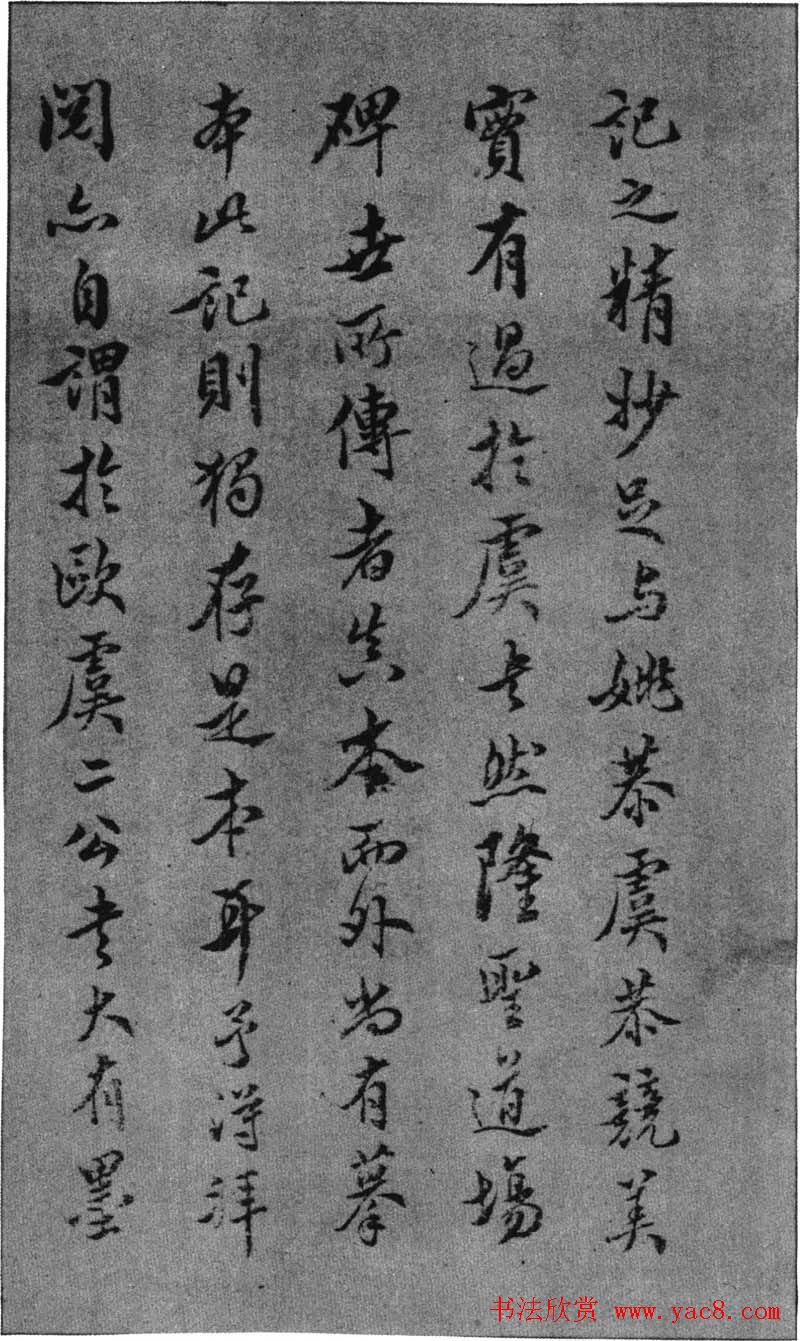 記之精妙足与姚恭虞恭競美
實有過於虞者然隆聖道場
碑世所傳者真本而外尚有摹
本此記則獨存是本耳予得拜
閱亦自謂於歐虞二公者大有墨
书法欣赏 www.yac8.com